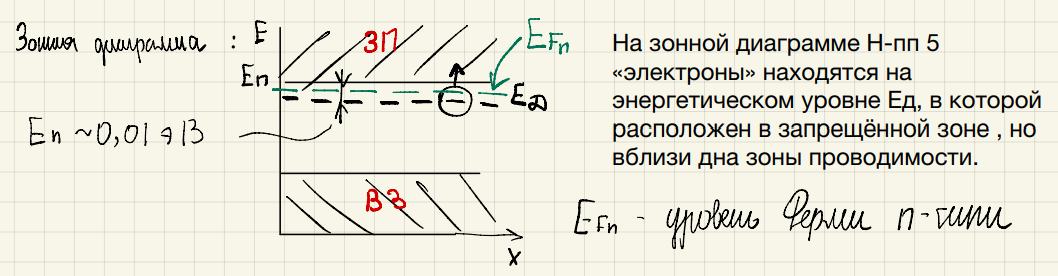 Зонная диаграмма :
E
ЗП
E_Fn
En
E_Д
En ~ 0,01 эВ
ВЗ
x
На зонной диаграмме Н-пп 5
«электроны» находятся на
энергетическом уровне Ед, в которой
расположен в запрещённой зоне , но
вблизи дна зоны проводимости.
E_Fn - уровень Ферми n-типа